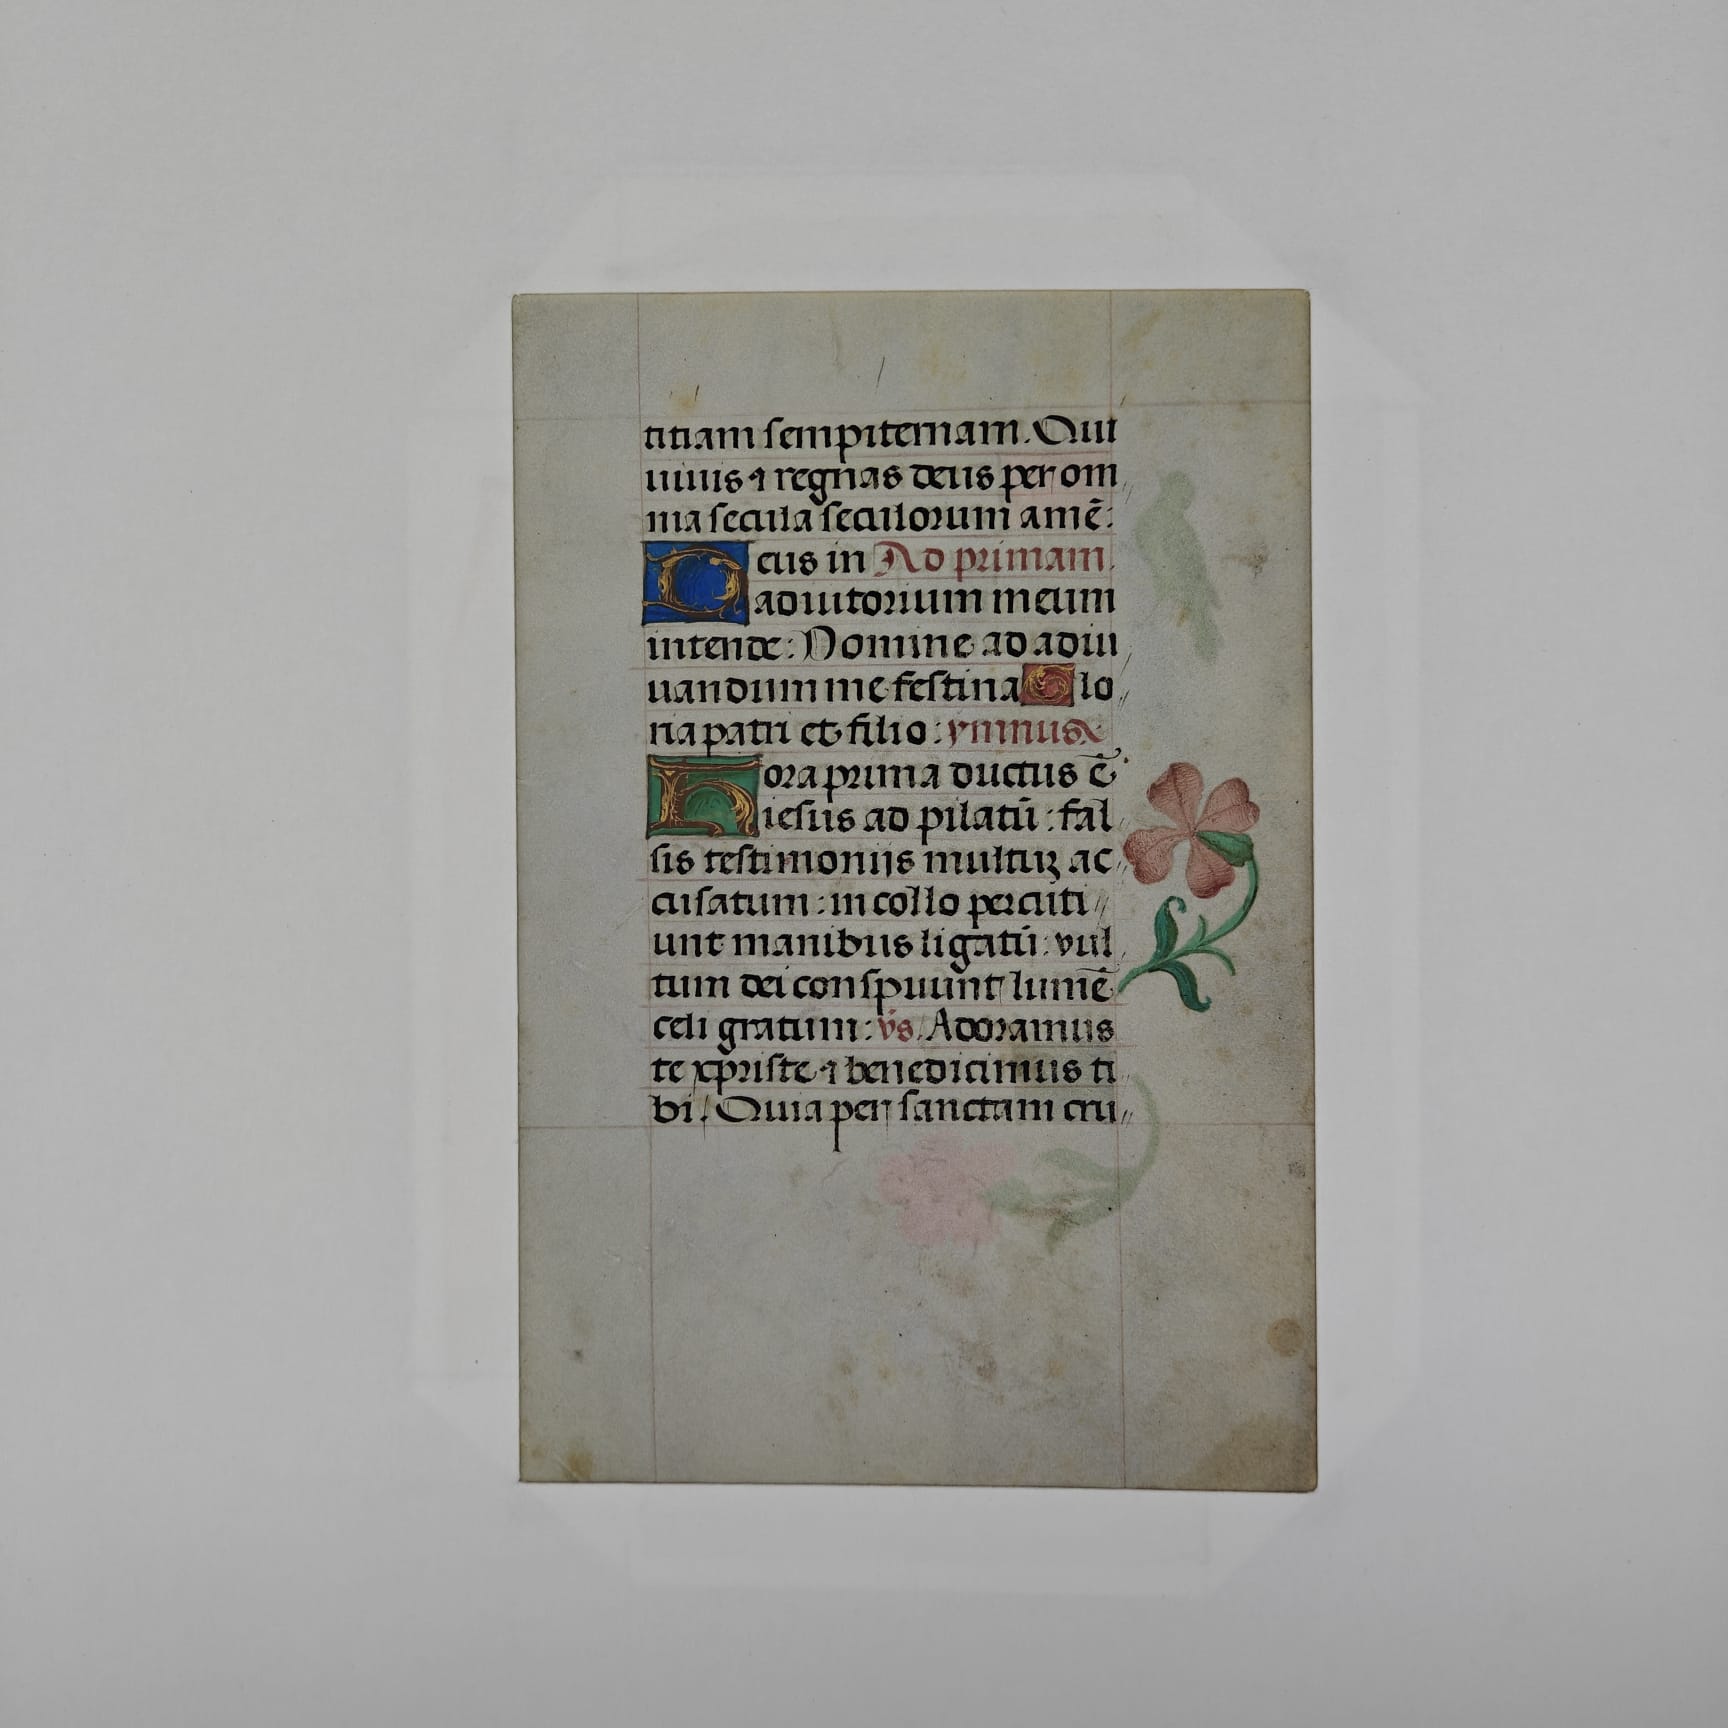 titiam sempiternam. Qui
uiuis ⁊ regnas deus per om
nia secula seculorum amẽ:
Deus in Ad primam.
adiutorium meum
intende: Domine ad adiu
uandum me festina Glo
ria patri et filio: ymnus
Hora prima ductus ẽ
iesus ad pilatũ: fal
sis testimoniis multis ac
cusatum: in collo percuti
unt manibus ligatũ: vul
tum dei conspuunt lumẽ
celi gratum: v̈s. Adoramus
te xpriste ⁊ benedicimus ti
bi. Quia per sanctam cru